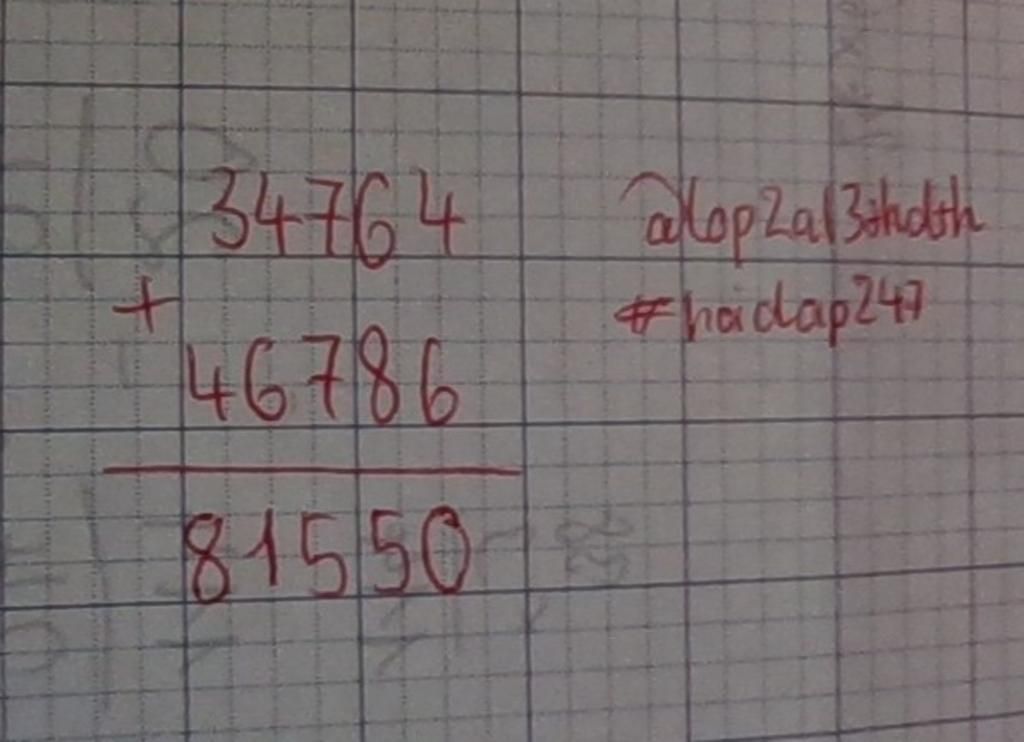 34764
+
46786
81550
@lop2a13thdth
#hoidap247